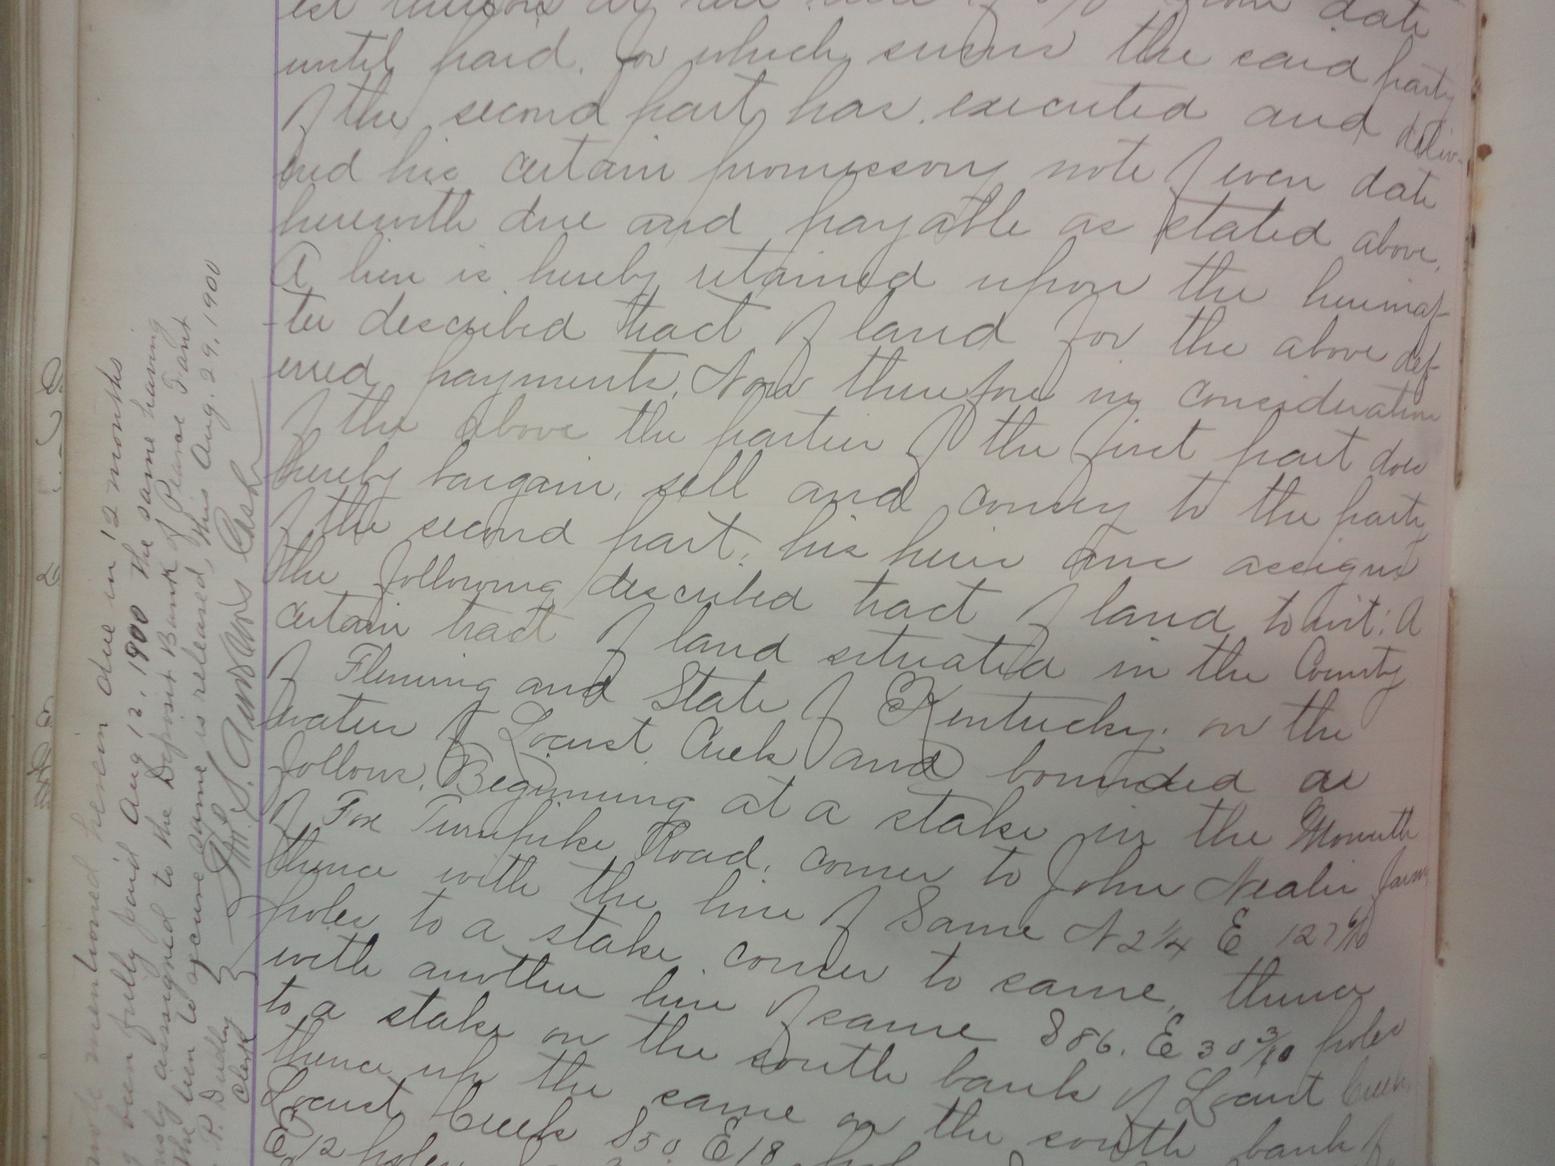 est thereon at the rate of 6% from date
until paid. for which sums the said party
of the second part, has executed and deliv-
ered his certain promissory note of even date
herewith due and payable as stated above.
A lien is hereby retained upon the hereinaf-
-ter described tract of land for the above def-
erred payments, Now therefore in consideration
of the above the parties of the first part does
hereby bargain, sell and convey to the party
of the second part, his heirs and assigns
the following described tract of land towit: A
certain tract of land situated in the County
of Fleming and State of Kentucky, on the
waters of Locust Creek and bounded as
follows, Beginning at a stake in the Mouth
of Fox Turnpike Road, corner to John Nealis farm,
thence with the line of Same N 2 1/4 E 127 6/10
poles to a stake corner to same, thence
with another line of same S 86. E 30 3/10 poles
to a stake on the south bank of Locust Creek,
thence up the same on the south bank of
Locust Creek S 50 E 18
E 12 poles
note mentioned herein due in 12 months
been fully paid Aug 12, 1900 The same having
assigned to the Deposit Bank of Pearce Fant
the lien to secure same is released, this Aug. 29, 1900
P. Dudley
Clerk
Cash